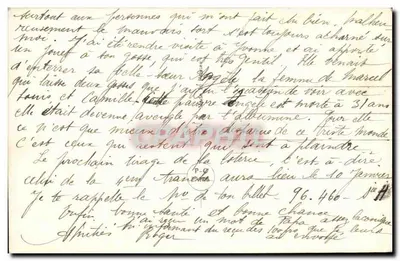 surtout aux personnes qui m'ont fait du bien. Malheu
reusement le mauvais sort s'est toujours acharné sur
moi. J'ai été rendre visite à Yvonne et ai apporté
un jouet à son gosse, qui est très gentil. Elle venait
d'enterrer sa belle-sœur Angèle la femme de Marcel
qui laisse deux gosses que j'ai eu l'occasion de voir avec
tours et Camille. pauvre Angèle est morte à 31 ans
elle était devenue aveugle par l'albumine. Pour elle
ce n'est que mieux d'être disparue de ce triste monde
C'est ceux qui restent qui sont à plaindre
Le prochain tirage de la loterie, c'est à dire
celui de la 1ère tranche aura lieu le 10 Janvier
Je te rappelle le No de ton billet 96.460 - H
Enfin, bonne santé et bonne chance
J'ai reçu un mot de Papa assez laconique
Amitiés m'informant du reçu des
Roger